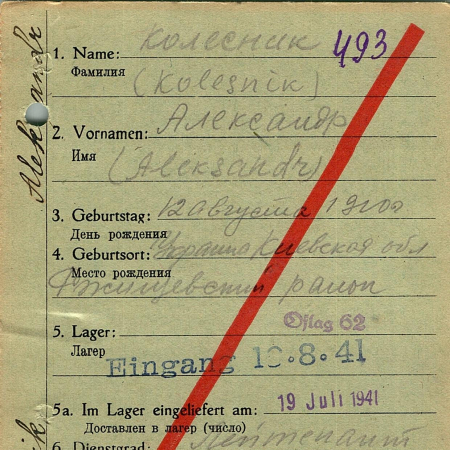 Aleksandr
1. Name: Колесник 493
Фамилия (Kolesnik)
2. Vornamen: Александр
Имя (Aleksandr)
3. Geburtstag: 12 августа 1910г
День рождения
4. Geburtsort: Киевская обл
Место рождения
Ржищевский район
5. Lager: Oflag 62
Лагер
Eingang 10.8.41
5a. Im Lager eingeliefert am: 19 Juli 1941
Доставлен в лагер (число)
6. Dienstgrad: Лейтенант